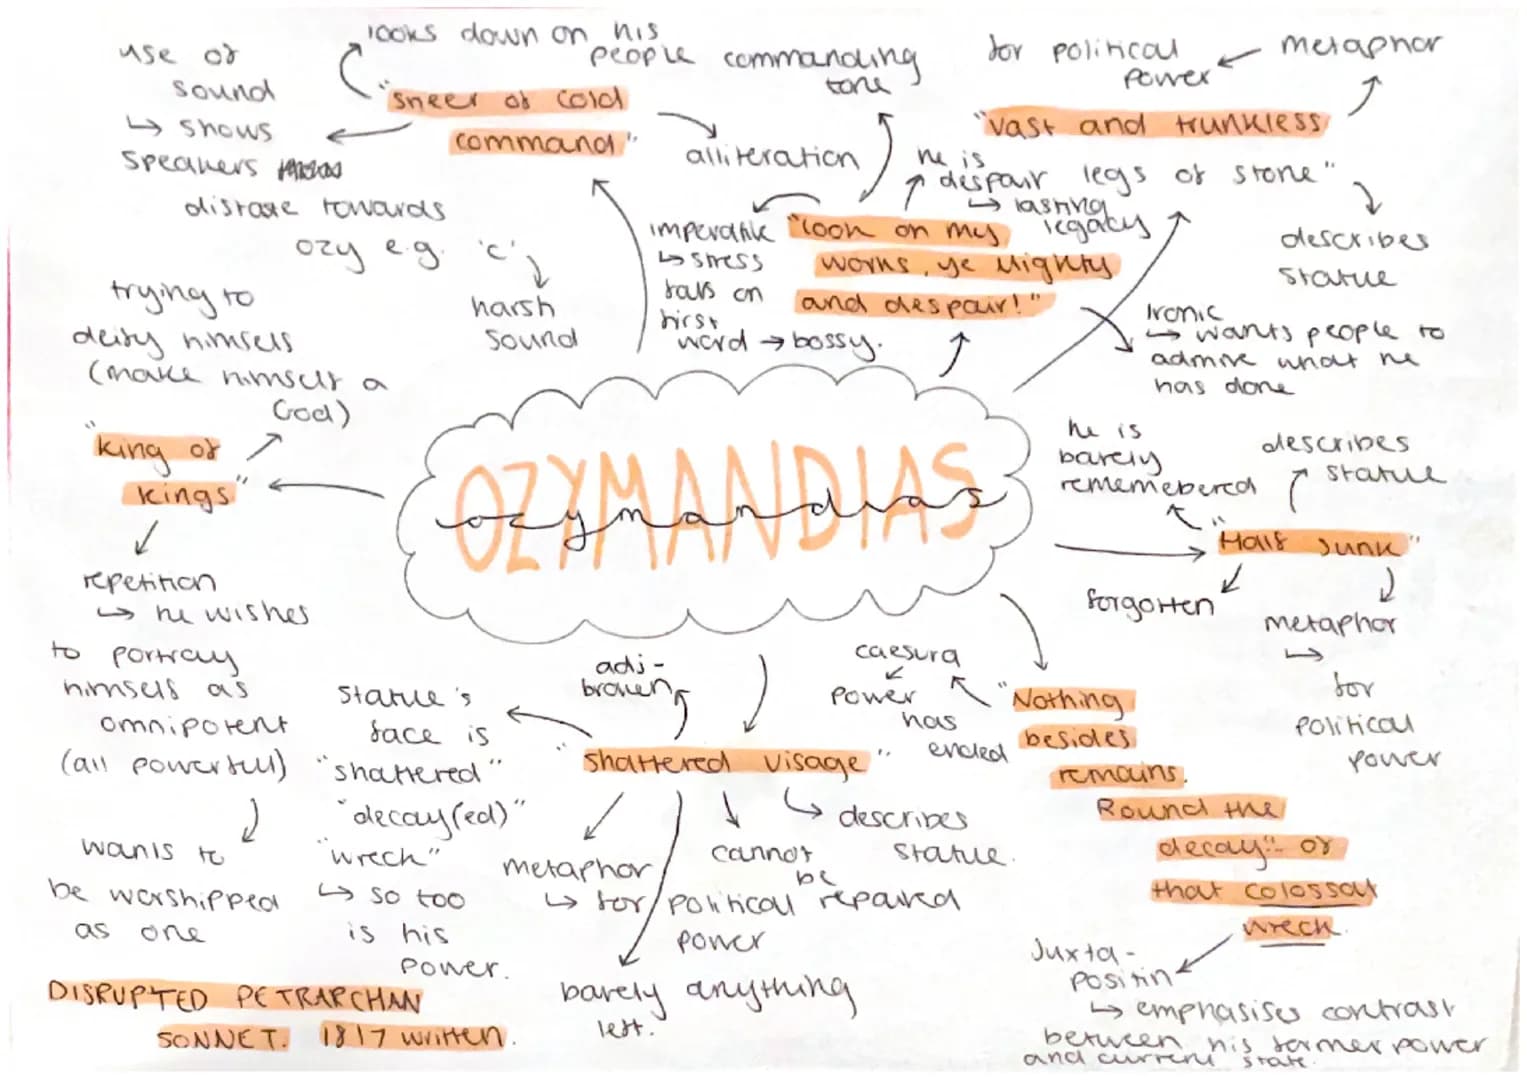 looks down on his
people
use of
sound
↳ shows
speakers
distaste towards
ozy e.g. 'c'
harsh
sound
"sneer of cold
command"
alliteration
commanding
tone
for political
power
metaphor
"vast and trunkless
legs of stone"
describes
statue
he is
despair
↳ lasting
legacy
imperative
↳ stress
falls on
first
word → bossy.
"look on my
works, ye Mighty
and despair!"
Ironic
↳ wants people to
admire what he
has done
trying to
deify himself
(make himself a
God)
"king of
kings"
repetition
↳ he wishes
to portray
himself as
omnipotent
(all powerful)
wants to
be worshipped
as one
OZYMANDIAS
ozymandias
he is
barely
rememebered
describes
statue
"Half sunk"
forgotten
metaphor
↳
for
political
power
adj-
broken
statue's
face is
"shattered"
"decay(ed)"
"wreck"
↳ so too
is his
power.
"shattered visage"
metaphor
↳ for political
power
cannot
be
repaired
describes
statue.
barely anything
left.
caesura
power
has
ended
"Nothing
besides
remains.
Round the
decay".. of
that colossal
wreck.
Juxta-
positin
↳ emphasises contrast
between his former power
and current state.
DISRUPTED PETRARCHAN
SONNET. 1817 written.